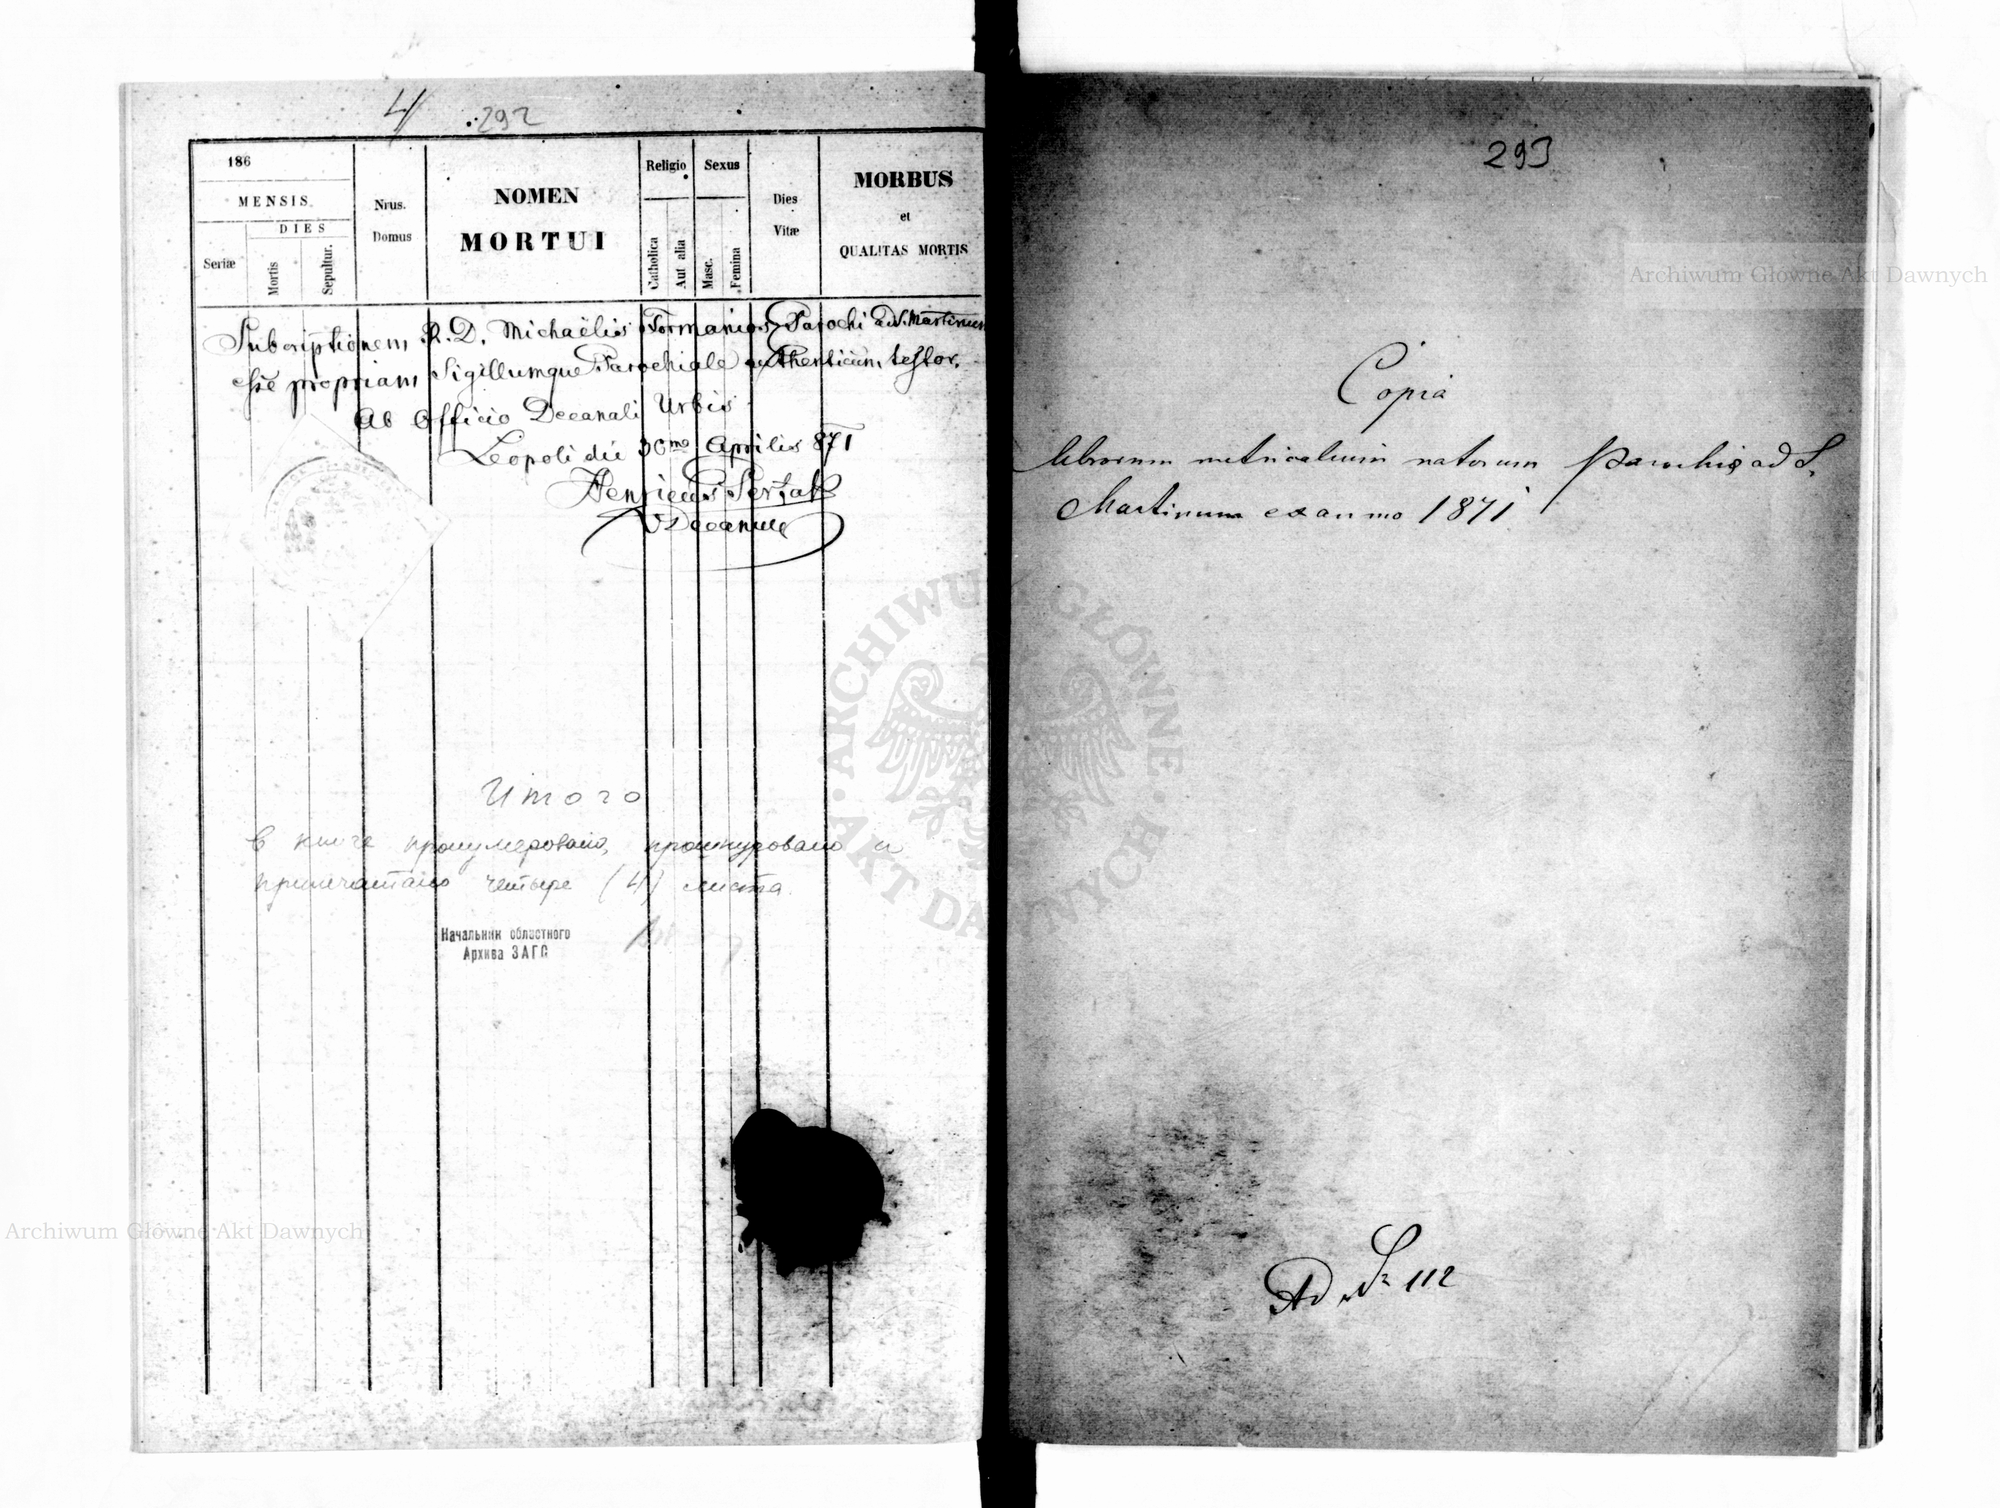 4 292
186
MENSIS.
DIES
Seriæ
Mortis
Sepultur.
Nrus.
Domus
NOMEN
MORTUI
Religio
Catholica
Aut alia
Sexus
Masc.
Femina
Dies
Vitæ
MORBUS
et
QUALITAS MORTIS
Subscriptionem R. D. Michaëlis Formanios Parochi ad S. Martinum
esse propriam Sigillumque Parochiale authenticum testor.
Ab Officio Decanali Urbis
Leopoli die 30mo Aprilis 871
Henricus
VDecanus
Итого
в книге пронумеровано, прошнуровано и
припечатано четыре (4) листа.
Начальник областного
Архива ЗАГС
293
Copia
librorum metricalium natorum Parochiæ ad S.
Martinum ex anno 1871
Ad Nr 112
Archiwum Główne Akt Dawnych
Archiwum Główne Akt Dawnych
ARCHIWUM GŁÓWNE · AKT DAWNYCH ·